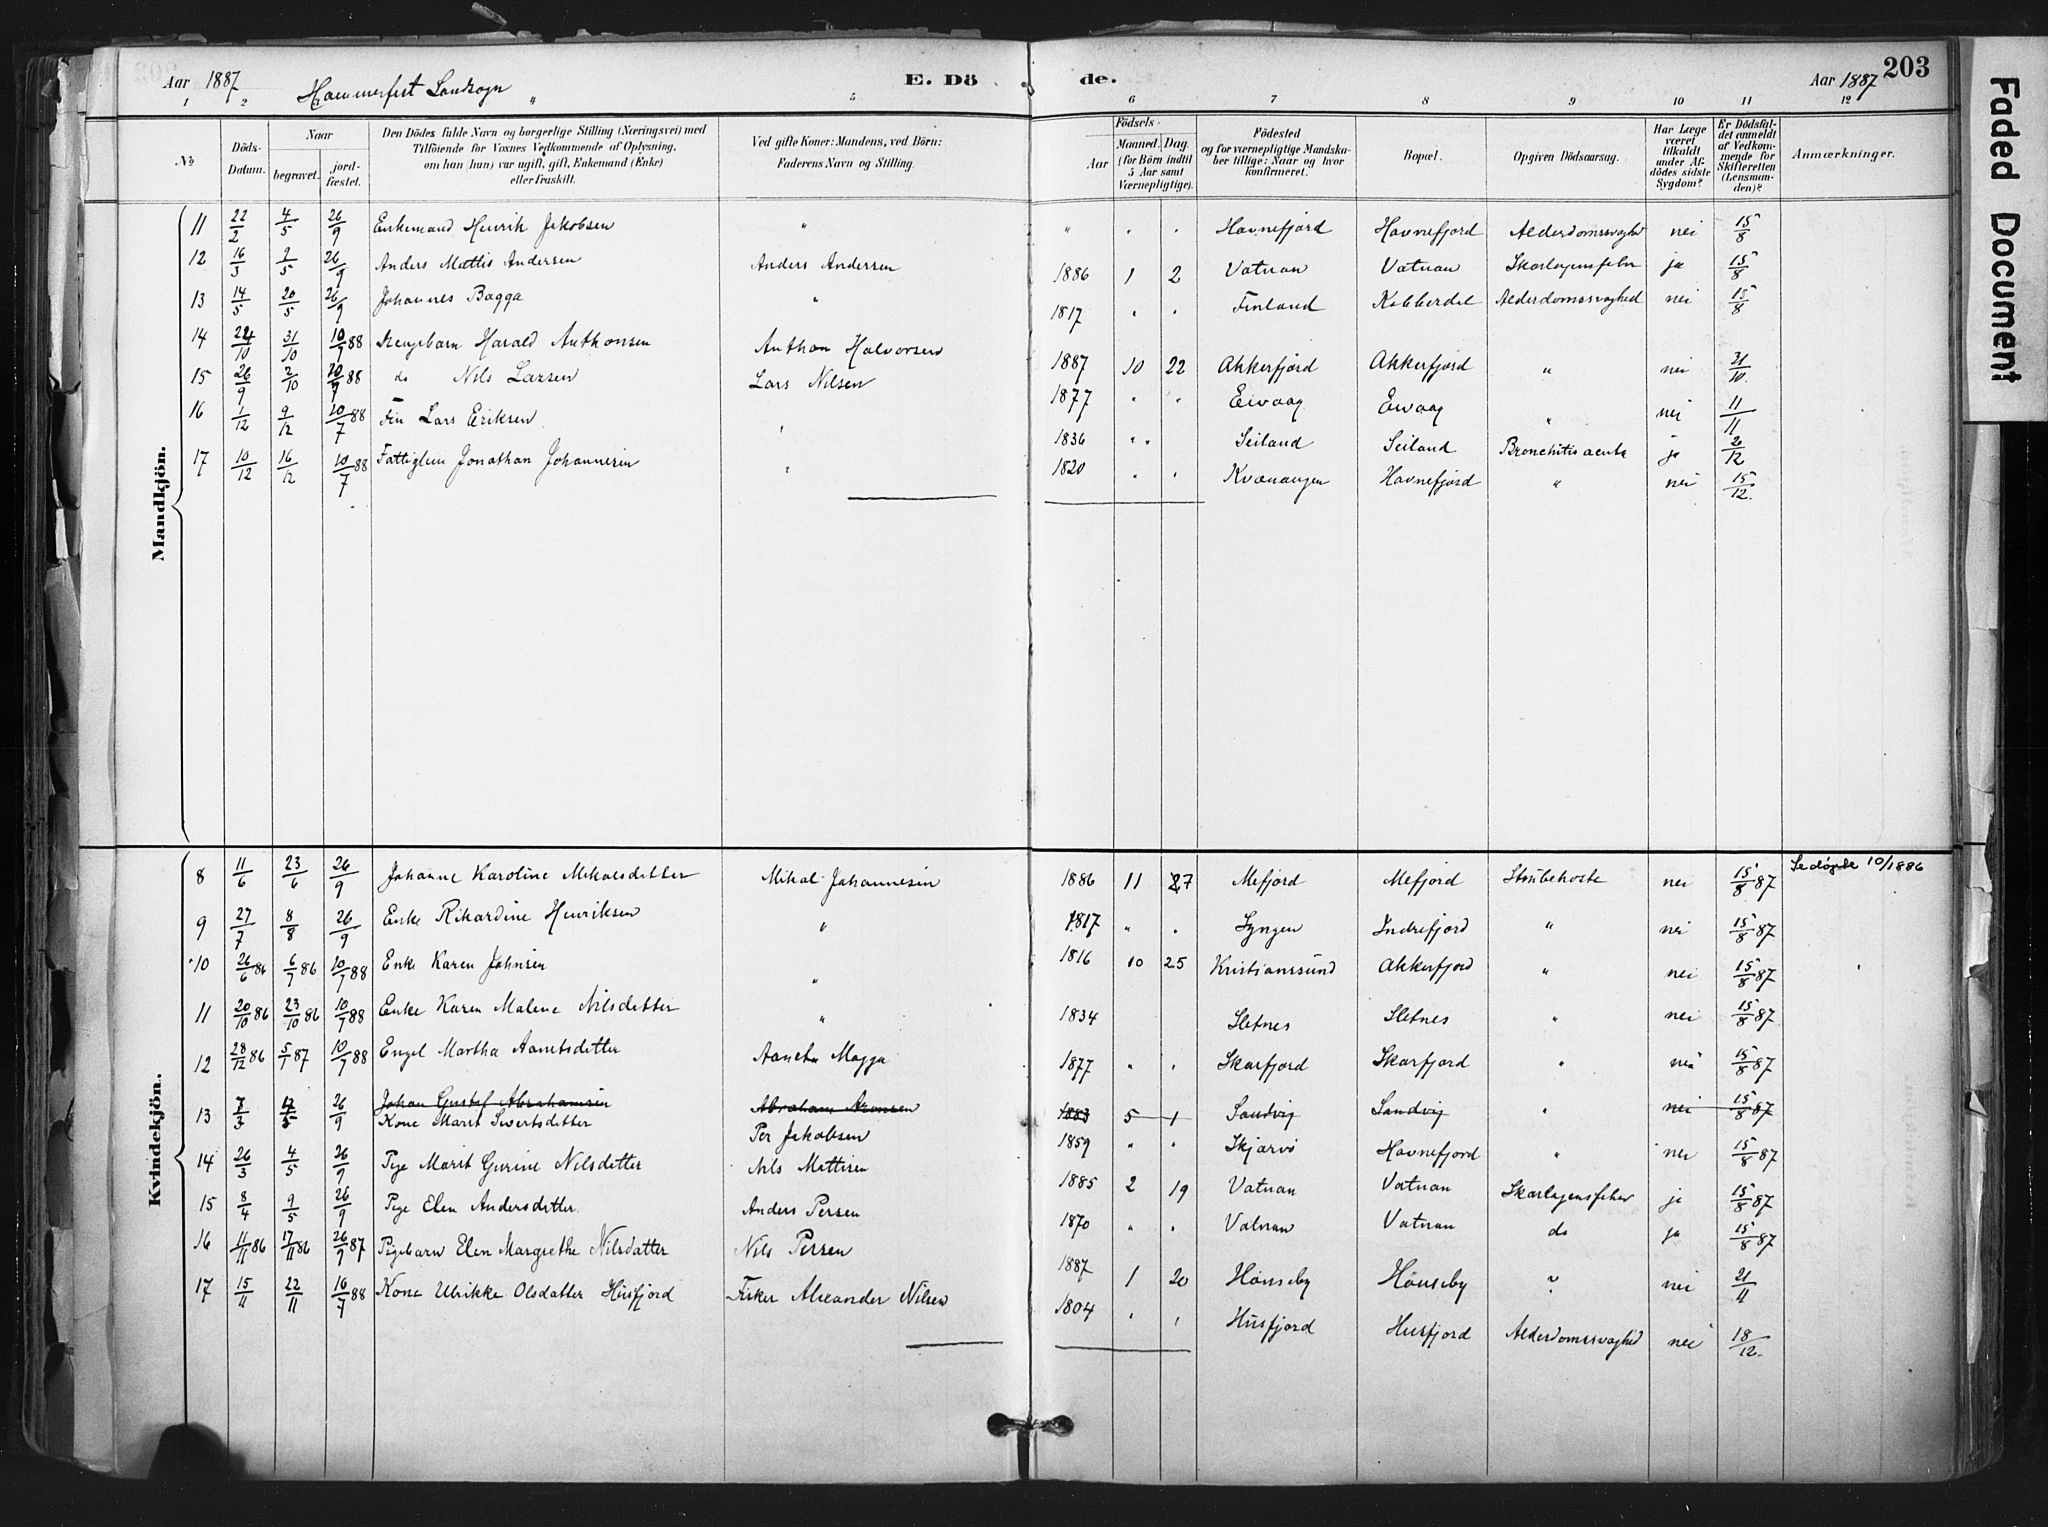 Aar 1887 Hammerfest Landsogn E. Dö de. Aar 1887 203
1 2 " 5 6 7 8 9 10 11 12
No Döds-Datum. Naar begravet. jord-fæstet. Den Dödes fulde Navn og borgerlige Stilling (Næringsvei) med Tilföiende for Voxnes Vedkommende af Oplysning, om han (hun) var ugift, gift, Enkemand (Enke) eller fraskilt. Ved gifte Koner: Mandens, ved Börn: Faderens Navn og Stilling. Födsels- Aar Maaned. Dag. (for Börn indtil 5 Aar samt Værnepligtige). Födested og for værnepligtige Mandskaber tillige: Naar og hvor konfirmeret. Bopæl. Opgiven Dödsaarsag. Har Læge været tilkaldt under Afdödes sidste Sygdom? Er Dödsfaldet anmeldt af Vedkommende for Skifteretten (Lensmanden)? Anmærkninger.
Mandkjön.
11 22/2 4/5 26/9 Enkemand Henrik Jakobsen " " " " Havnefjord Havnefjord Alderdomssvaghed nei 15/8
12 16/3 9/5 26/9 Anders Mattis Andersen Anders Andersen 1886 1 2 Vatnan Vatnan Skarlagensfeber ja 15/8
13 14/5 20/5 26/9 Johannes Bagga " 1817 " " Finland Kobberdal Alderdomssvaghed nei 15/8
14 24/10 31/10 10/7 88 Harald Anthonsen Anthon Halvorsen 1887 10 22 Akkerfjord Akkerfjord " nei 31/10
15 26/9 2/10 10/7 88 do Nils Larsen Lars Nilsen 1877 " " Eivaag Eivaag " nei 11/11
16 1/12 9/12 10/7 88 Fin Lars Eriksen " 1836 " " Seiland Seiland Bronchitis acuta ja 2/12
17 10/12 16/12 10/7 88 Fattiglem Jonathan Johannesen " 1820 " " Kvænangen Havnefjord " nei 15/12
Kvindekjön.
8 11/6 23/6 26/9 Johanne Karoline Mikalsdatter Mikal Johannesen 1886 11 27 Mefjord Mefjord Strubehoste nei 15/8 87 Se døpte 10/1886
9 27/7 8/8 26/9 Enke Rikardine Henriksen " 1817 " " Lyngen Indrefjord " nei 15/8 87
10 26/6 86 6/7 86 10/7 88 Enke Karen Johnsen " 1816 10 25 Kristianssund Akkerfjord " nei 15/8 87
11 20/10 86 23/10 86 10/7 88 Enke Karen Malene Nilsdatter " 1834 Sletnes Sletnes " nei 15/8 87
12 28/12 86 5/1 87 10/7 88 Engel Martha Aametsdatter Magga 1877 " " Skarfjord Skarfjord " nei 15/8 87
Johan Gustaf Abrahamsen Abraham Aronsen 1883 5 1 Sandvig Sandvig " nei 15/8 87
13 7/3 26/9 Kone Marit Sivertsdatter Per Jakobsen 1859 " " Skjærvø Havnefjord " nei 15/8 87
14 26/3 4/5 26/9 Pige Marit Gurine Nilsdatter Nils Mattisen 1885 2 19 Vatnan Vatnan Skarlagensfeber ja 15/8 87
15 8/4 9/5 26/9 Pige Elen Andersdatter Anders Persen 1870 " " Vatnan Vatnan do ja 15/8 87
16 11/11 86 17/11 86 26/9 87 Pigebarn Elen Margrethe Nilsdatter Nils Persen 1887 1 20 Hønseby Hønseby " nei 21/11
17 15/11 22/11 16/7 88 Kone Ulrikke Olsdatter Husfjord Fisker Alexander Nilsen 1804 " " Husfjord Husfjord Alderdomssvaghed nei 18/12
Faded Document